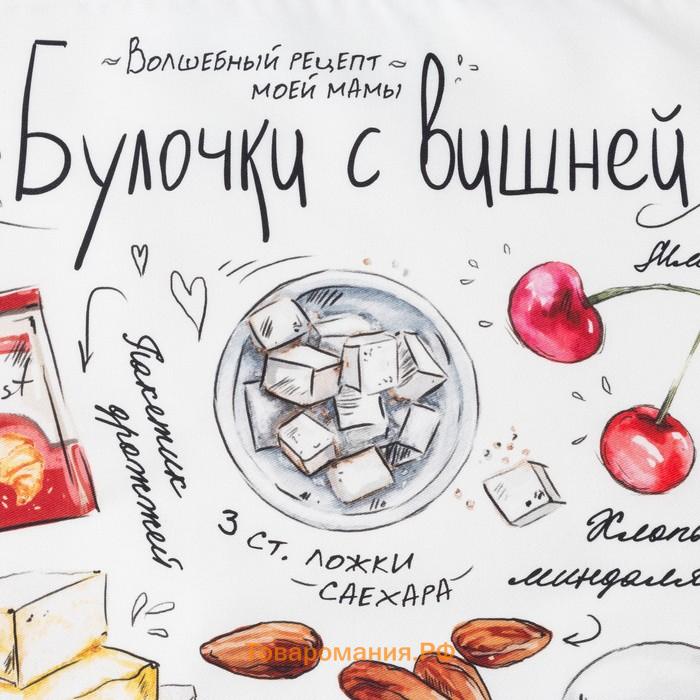 ~ Волшебный рецепт ~
моей мамы
Булочки с вишней
st
Пакетик
дрожжей
3 ст. ложки
саехара
миндаля
Товаромания.РФ